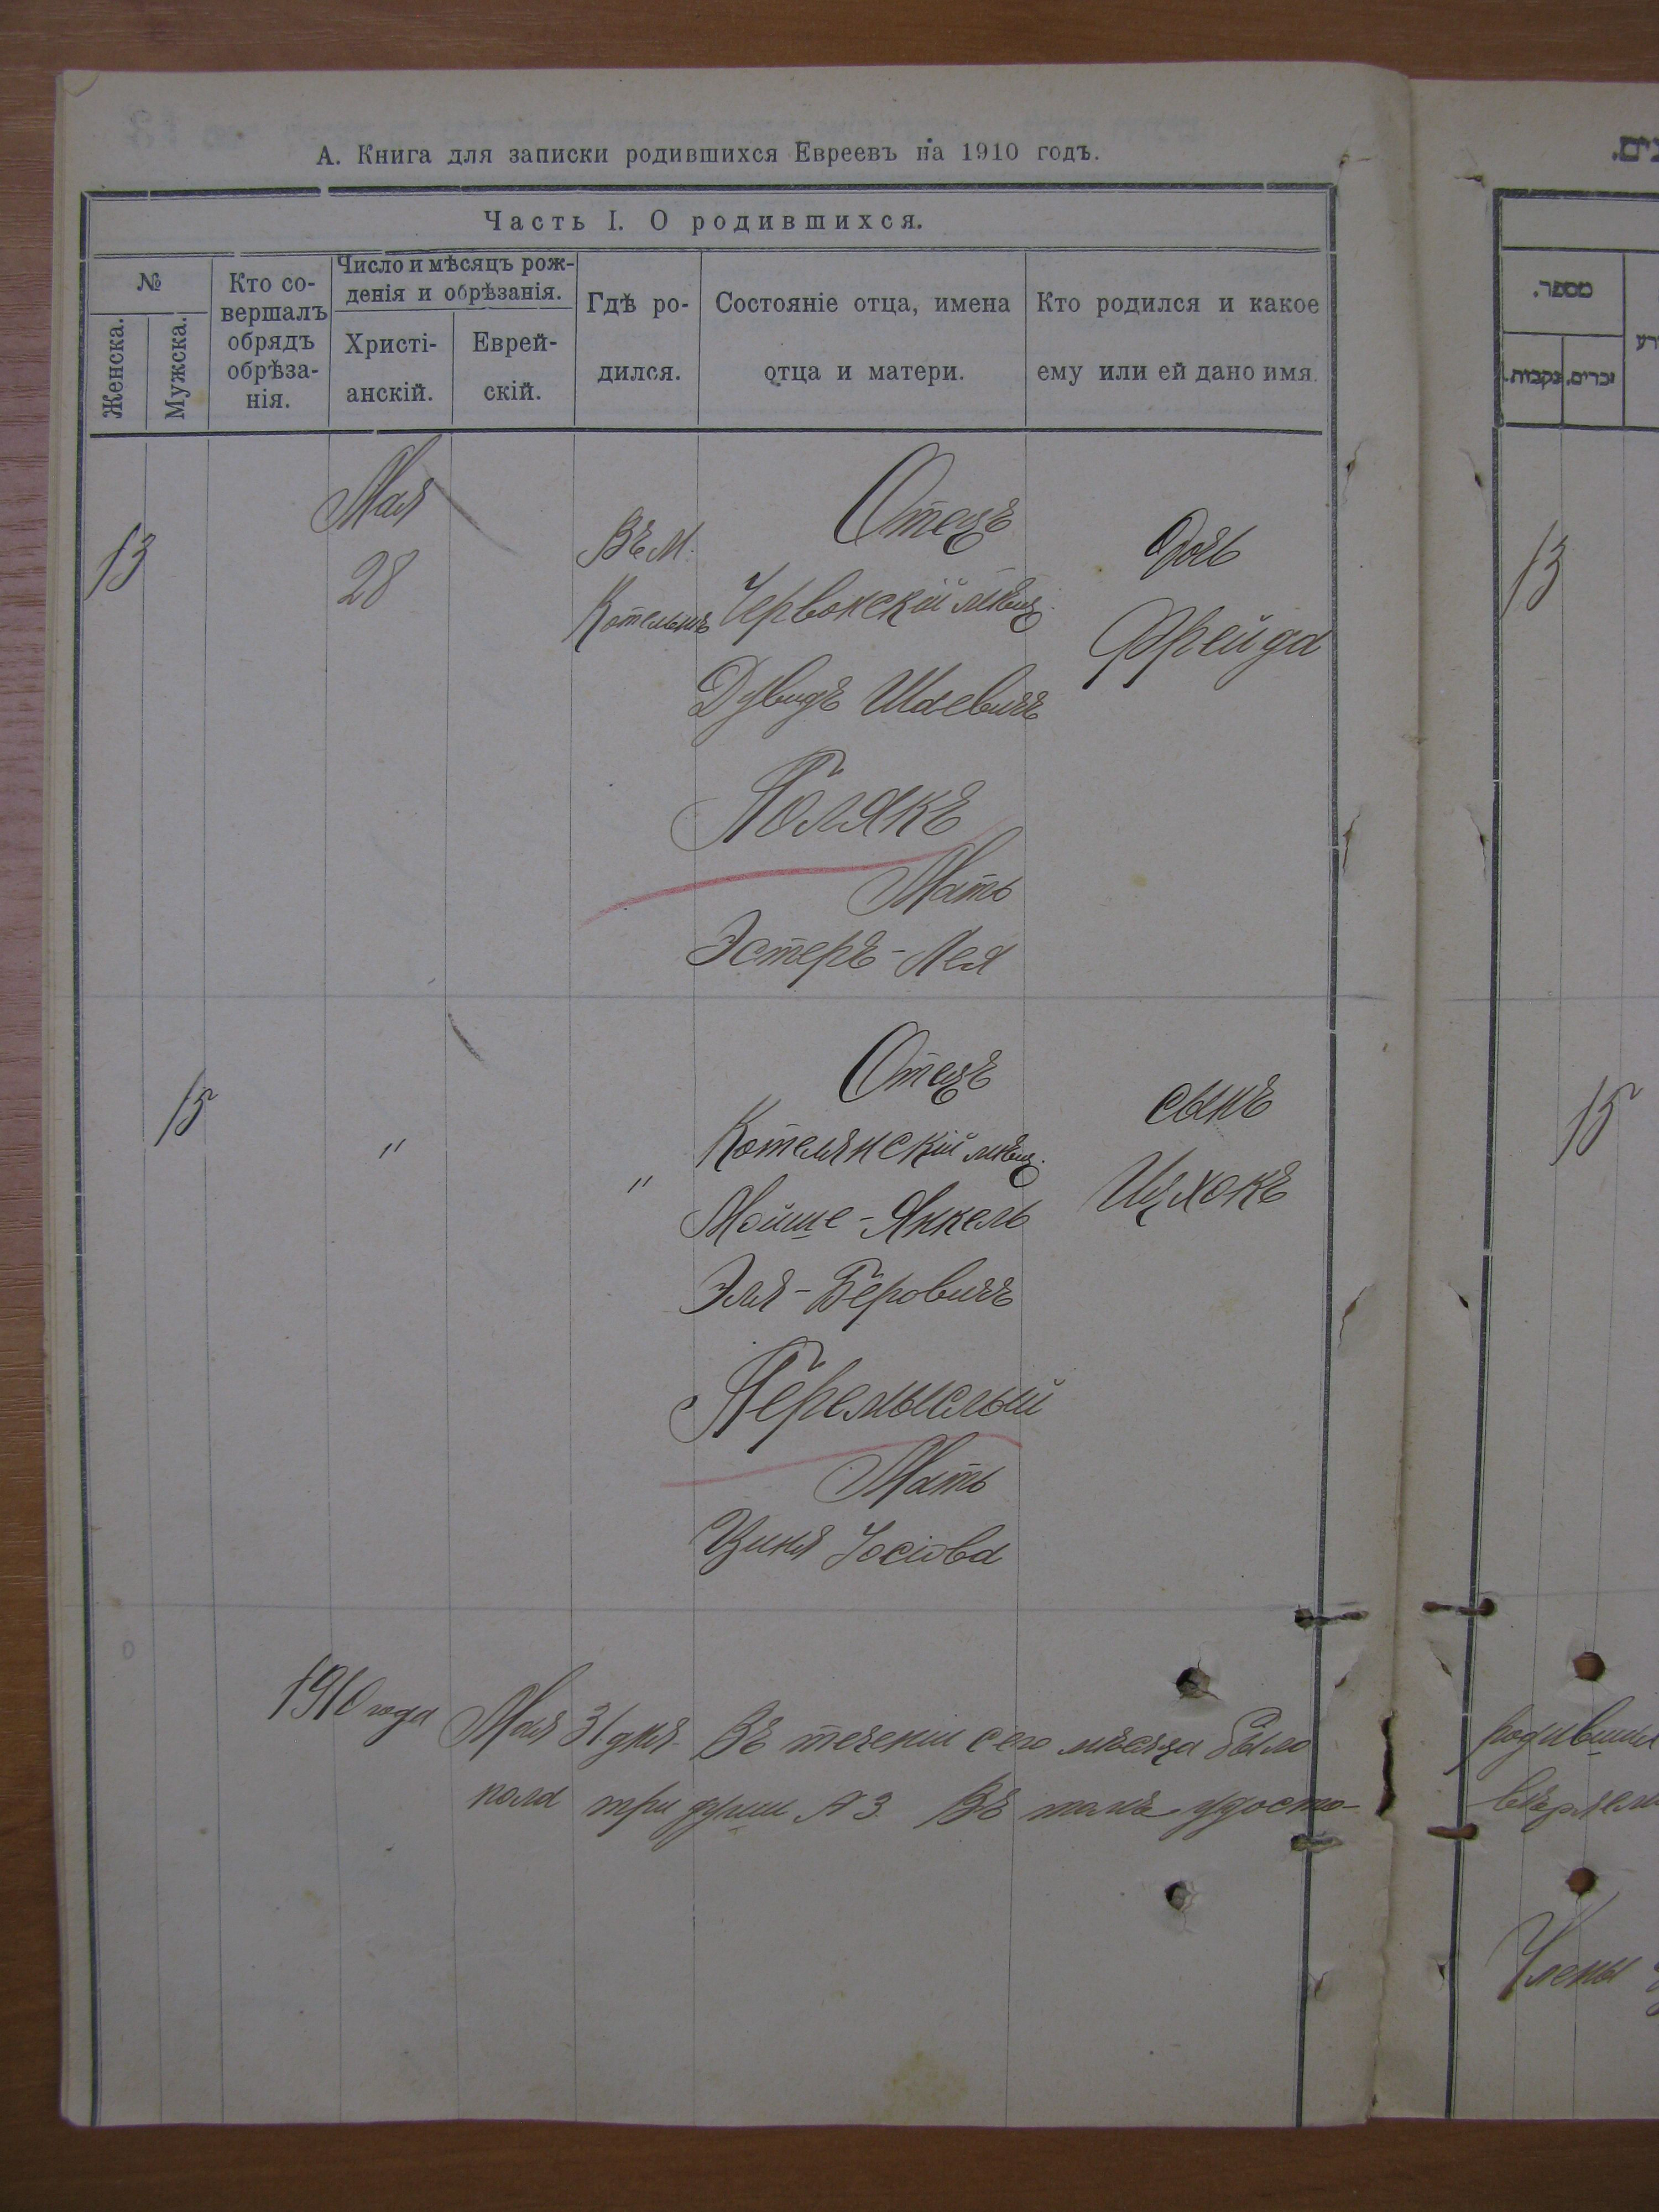 А. Книга для записки родившихся Евреевъ на 1910 годъ.
Часть I. О родившихся.
№
Женска.
Мужска.
Кто со-
вершалъ
обрядъ
обрѣза-
нія.
Число и мѣсяцъ рож-
денія и обрѣзанія.
Христі-
анскій.
Еврей-
скій.
Гдѣ ро-
дился.
Состояніе отца, имена
отца и матери.
Кто родился и какое
ему или ей дано имя.
13
Мая
28
Въ М.
Отецъ
Червонскій мѣщ.
Дувидъ Шаевичъ
Полякъ
Мать
Эстеръ-Лея
Дочь
Фрейда
15
"
"
Отецъ
Котелянскій мѣщ.
Мойше-Янкель
Эля-Беровичъ
Перемыслый
Мать
Циня Іосіова
сынъ
Ицхокъ
1910 года Мая 31 дня. Въ теченіи сего мѣсяца было
пола три души № 3. Въ томъ удосто-
מספר.
נקבות.
זכרים.
13
15
Члены